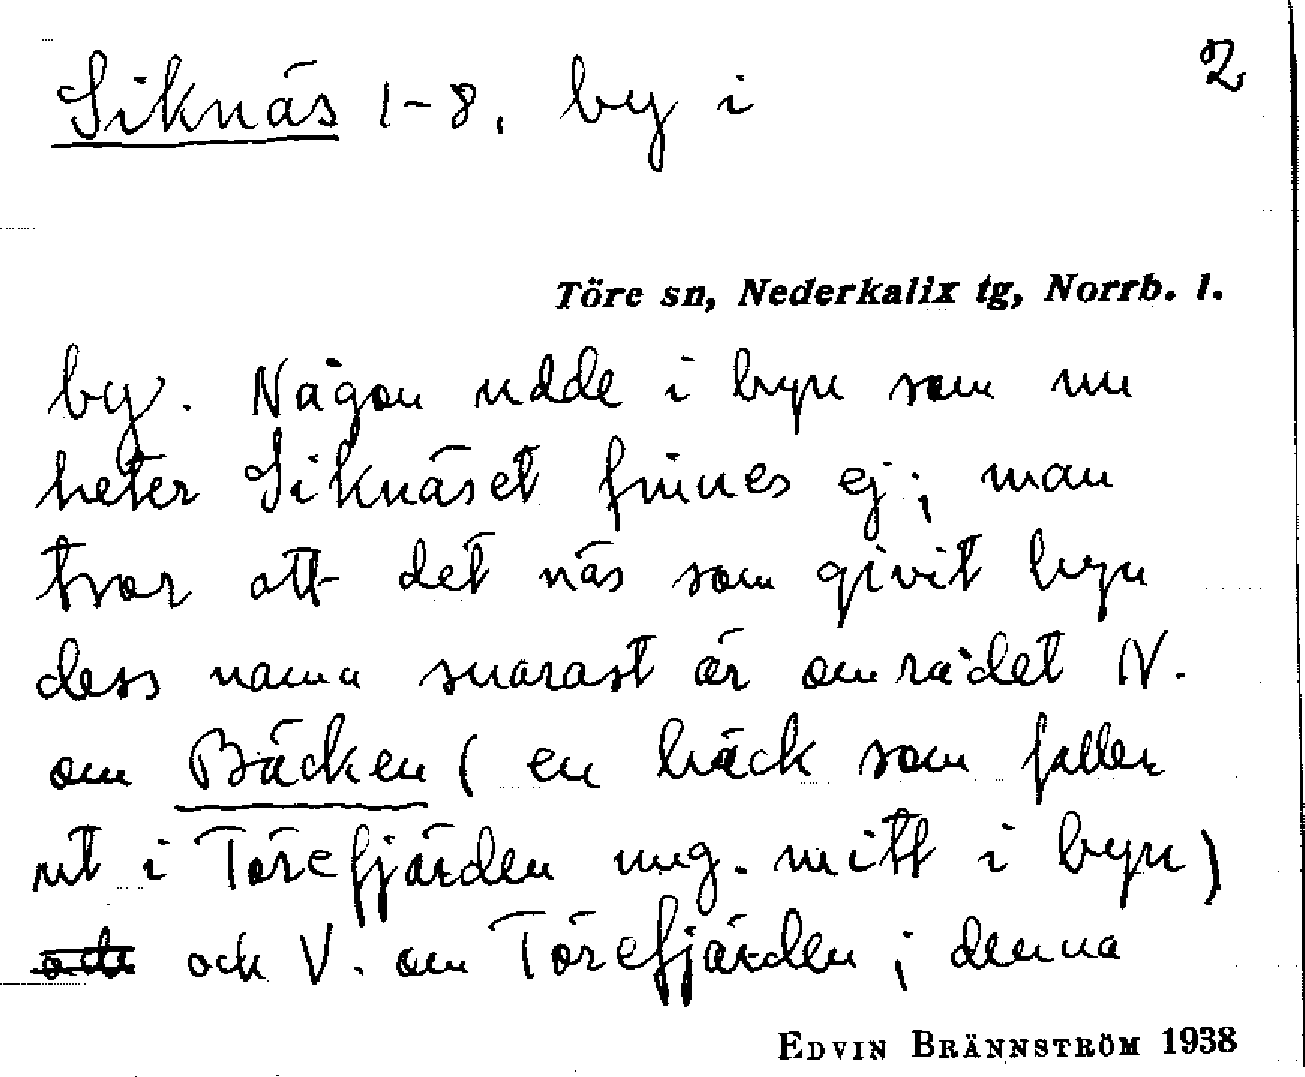 2
Siknäs 1-8, by i
Töre sn, Nederkalix tg, Norrb. l.
by. Någon udde i byn som nu
heter Siknäset finnes ej; man
tror att det näs som givit byn
dess namn snarast är området N.
om Bäcken (en bäck som faller
ut i Törefjärden ung. mitt i byn)
och och V. om Törefjärden; denna
EDVIN BRÄNNSTRÖM 1938